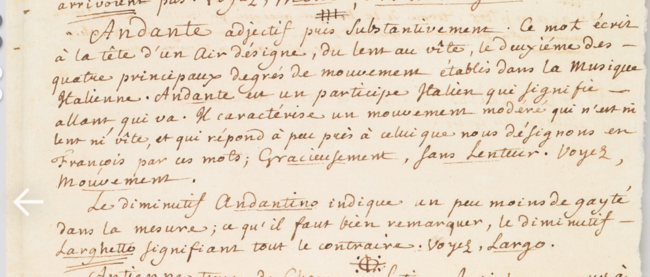 arrivoient pas. Voyez,
Andante adjectif pris Substantivement. Ce mot écrit
à la tête d'un Air désigne, du lent au vîte, le deuxième des
quatre principaux degrés de mouvement établis dans la Musique
Italienne. Andante est un participe Italien qui signifie
allant qui va. Il caractérise un mouvement modéré qui n'est ni
lent ni vîte, et qui répond à peu près à celui que nous désignons en
François par ces mots; Gracieusement, sans Lenteur. Voyez,
Mouvement.
Le diminutif Andantino indique un peu moins de gayté
dans la mesure; ce qu'il faut bien remarquer, le diminutif
Larghetto signifiant tout le contraire. Voyez, Largo.